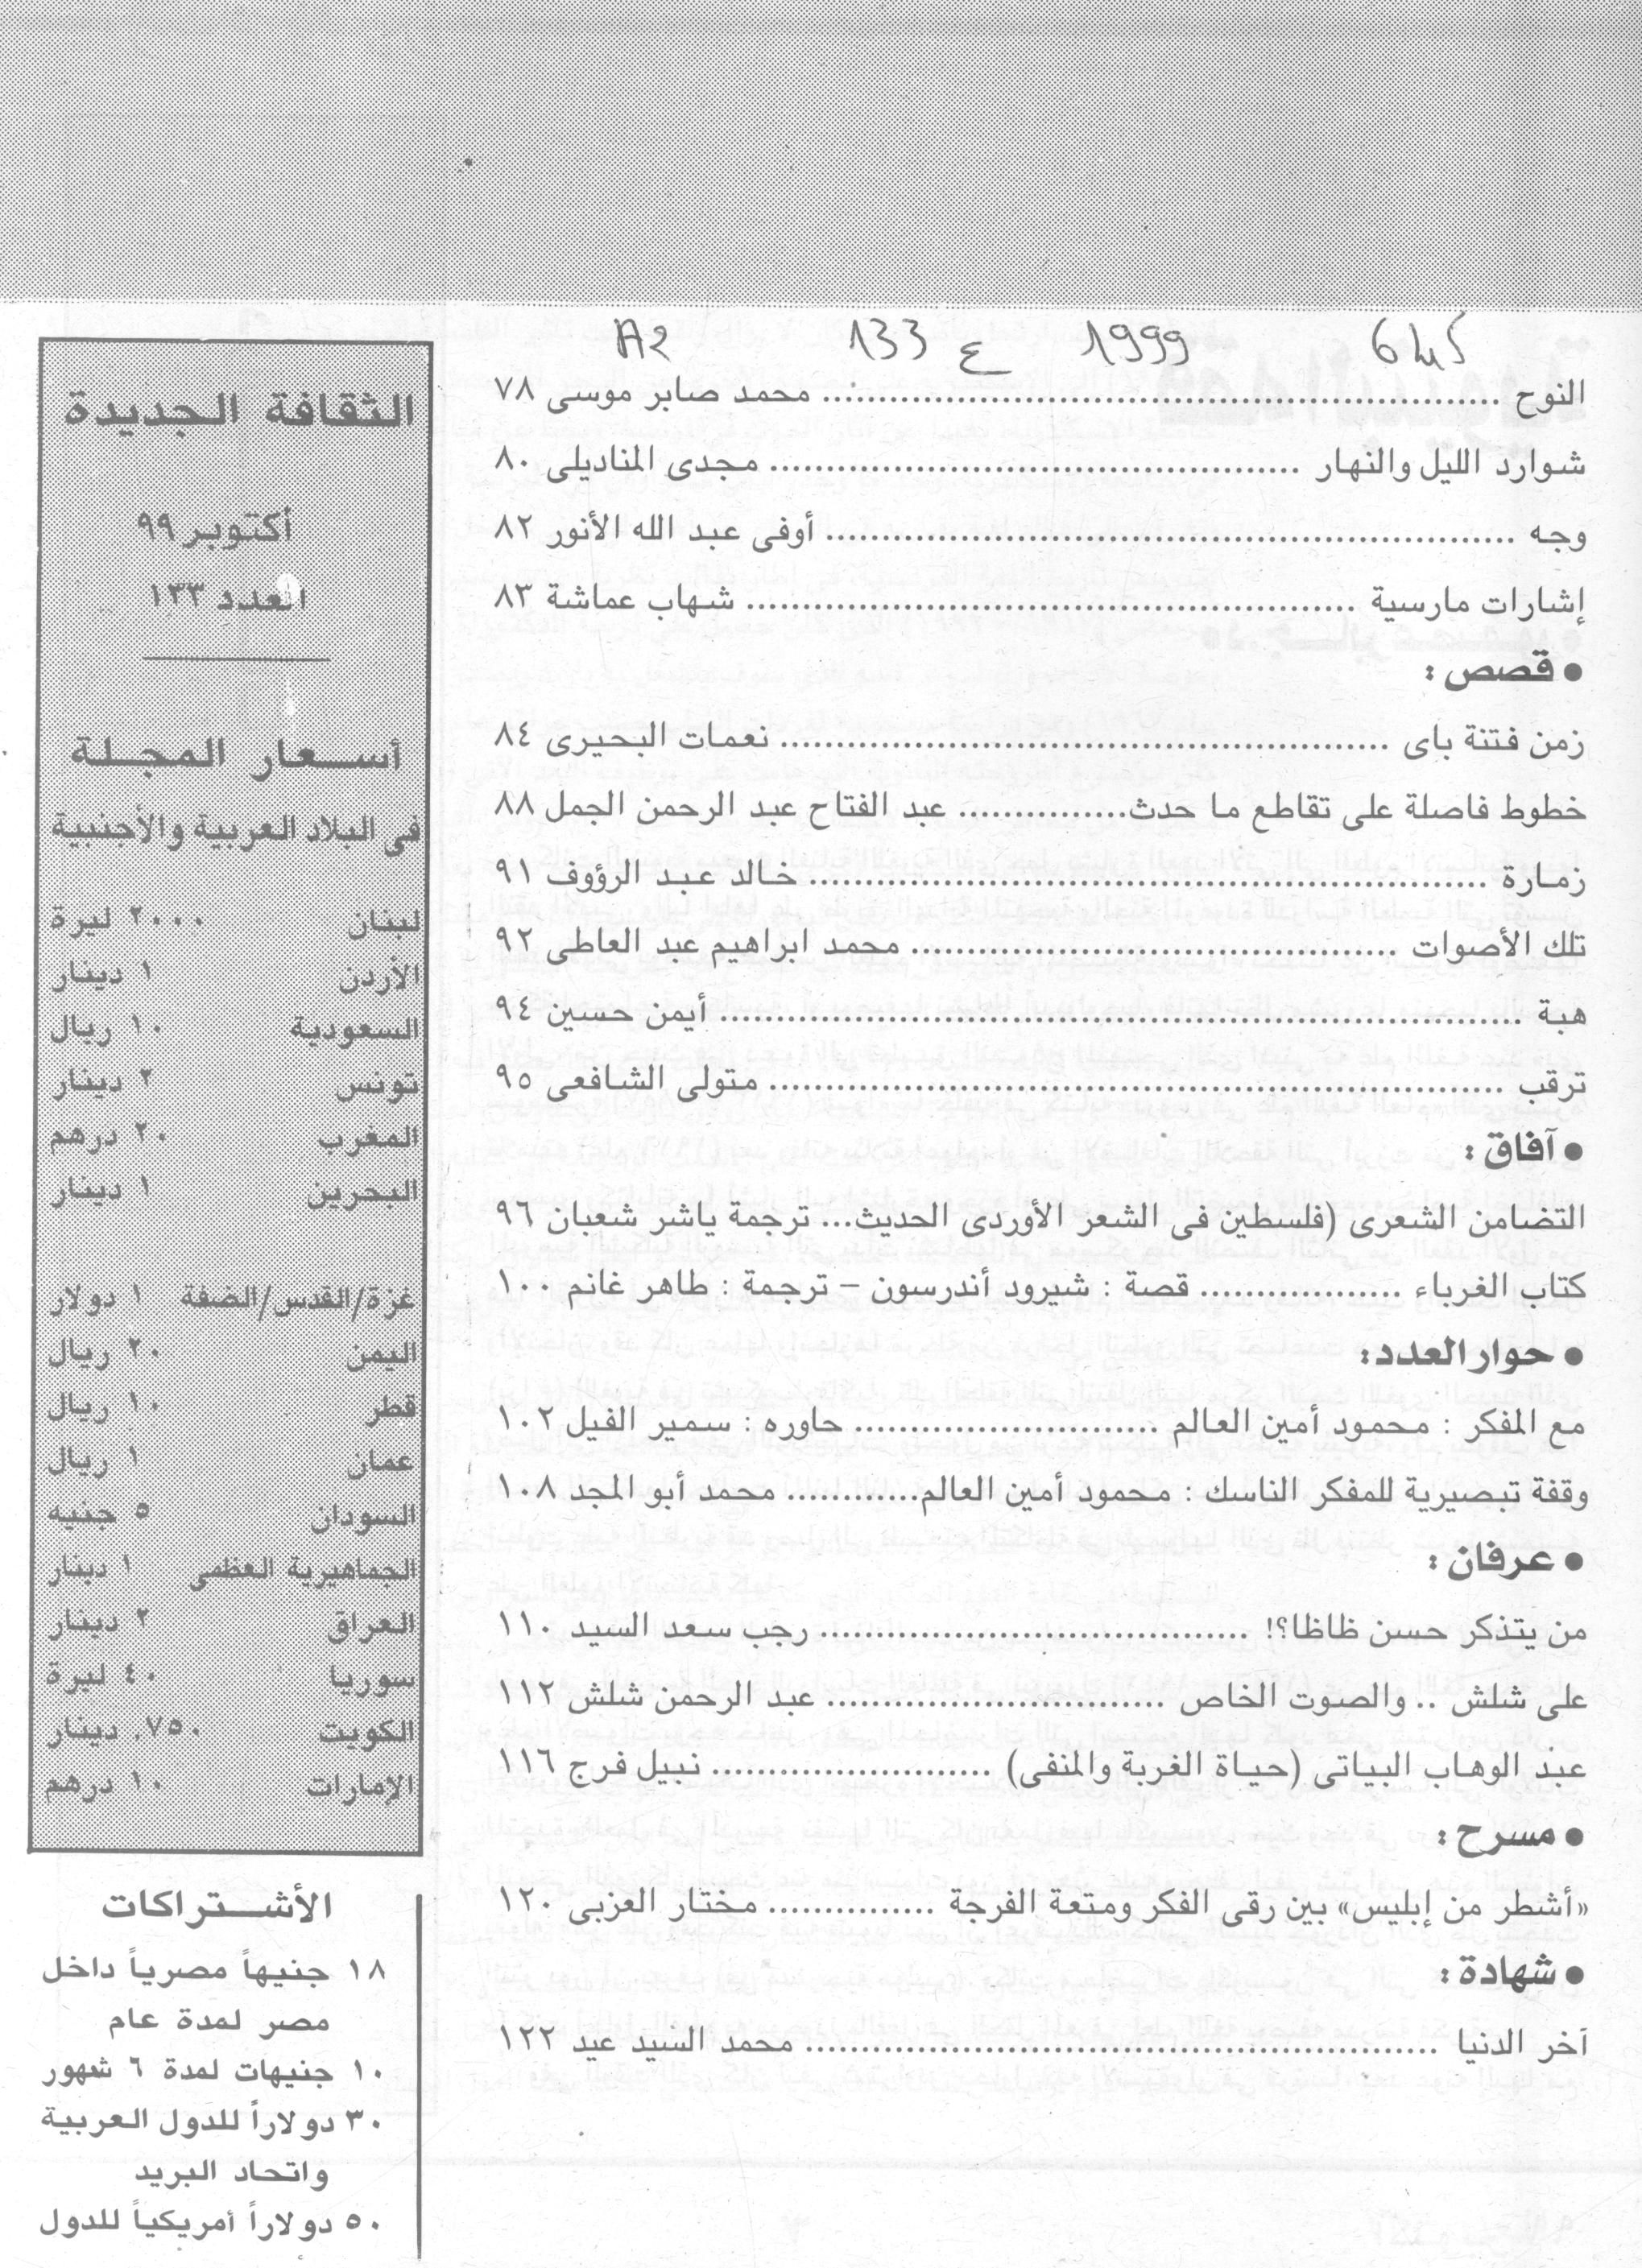 A2 133 ع 1999
النوح ........ محمد صابر موسى ٧٨
شوارد الليل والنهار ........ مجدى المناديلى ٨٠
وجه ........ أوفى عبد الله الأنور ٨٢
إشارات مارسية ........ شهاب عماشة ٨٣
● قصص :
زمن فتنة باى ........ نعمات البحيرى ٨٤
خطوط فاصلة على تقاطع ما حدث........ عبد الفتاح عبد الرحمن الجمل ٨٨
زمارة ........ خالد عبد الرؤوف ٩١
تلك الأصوات ........ محمد ابراهيم عبد العاطى ٩٢
هبة ........ أيمن حسين ٩٤
ترقب ........ متولى الشافعى ٩٥
● آفاق :
التضامن الشعرى (فلسطين فى الشعر الأوردى الحديث... ترجمة ياشر شعبان ٩٦
كتاب الغرباء ........ قصة : شيرود أندرسون – ترجمة : طاهر غانم ١٠٠
● حوار العدد:
مع المفكر : محمود أمين العالم ........ حاوره : سمير الفيل ١٠٢
وقفة تبصيرية للمفكر الناسك : محمود أمين العالم........ محمد أبو المجد ١٠٨
● عرفان :
من يتذكر حسن ظاظا؟! ........ رجب سعد السيد ١١٠
على شلش .. والصوت الخاص ........ عبد الرحمن شلش ١١٢
عبد الوهاب البياتى (حياة الغربة والمنفى) ........ نبيل فرج ١١٦
● مسرح :
«أشطر من إبليس» بين رقى الفكر ومتعة الفرجة ........ مختار العزبى ١٢٠
● شهادة :
آخر الدنيا ........ محمد السيد عيد ١٢٢
الثقافة الجديدة
أكتوبر ٩٩
العدد ١٣٣
أسعار المجلة
فى البلاد العربية والأجنبية
لبنان ٢٠٠٠ ليرة
الأردن ١ دينار
السعودية ١٠ ريال
تونس ٢ دينار
المغرب ٢٠ درهم
البحرين ١ دينار
غزة/القدس/الضفة ١ دولار
اليمن ٢٠ ريال
قطر ١٠ ريال
عمان ١ ريال
السودان ٥ جنيه
الجماهيرية العظمى ١ دينار
العراق ٢ دينار
سوريا ٤٠ ليرة
الكويت ٧٥٠. دينار
الإمارات ١٠ درهم
الأشتراكات
١٨ جنيهاً مصرياً داخل
مصر لمدة عام
١٠ جنيهات لمدة ٦ شهور
٣٠ دولاراً للدول العربية
واتحاد البريد
٥٠ دولاراً أمريكياً للدول